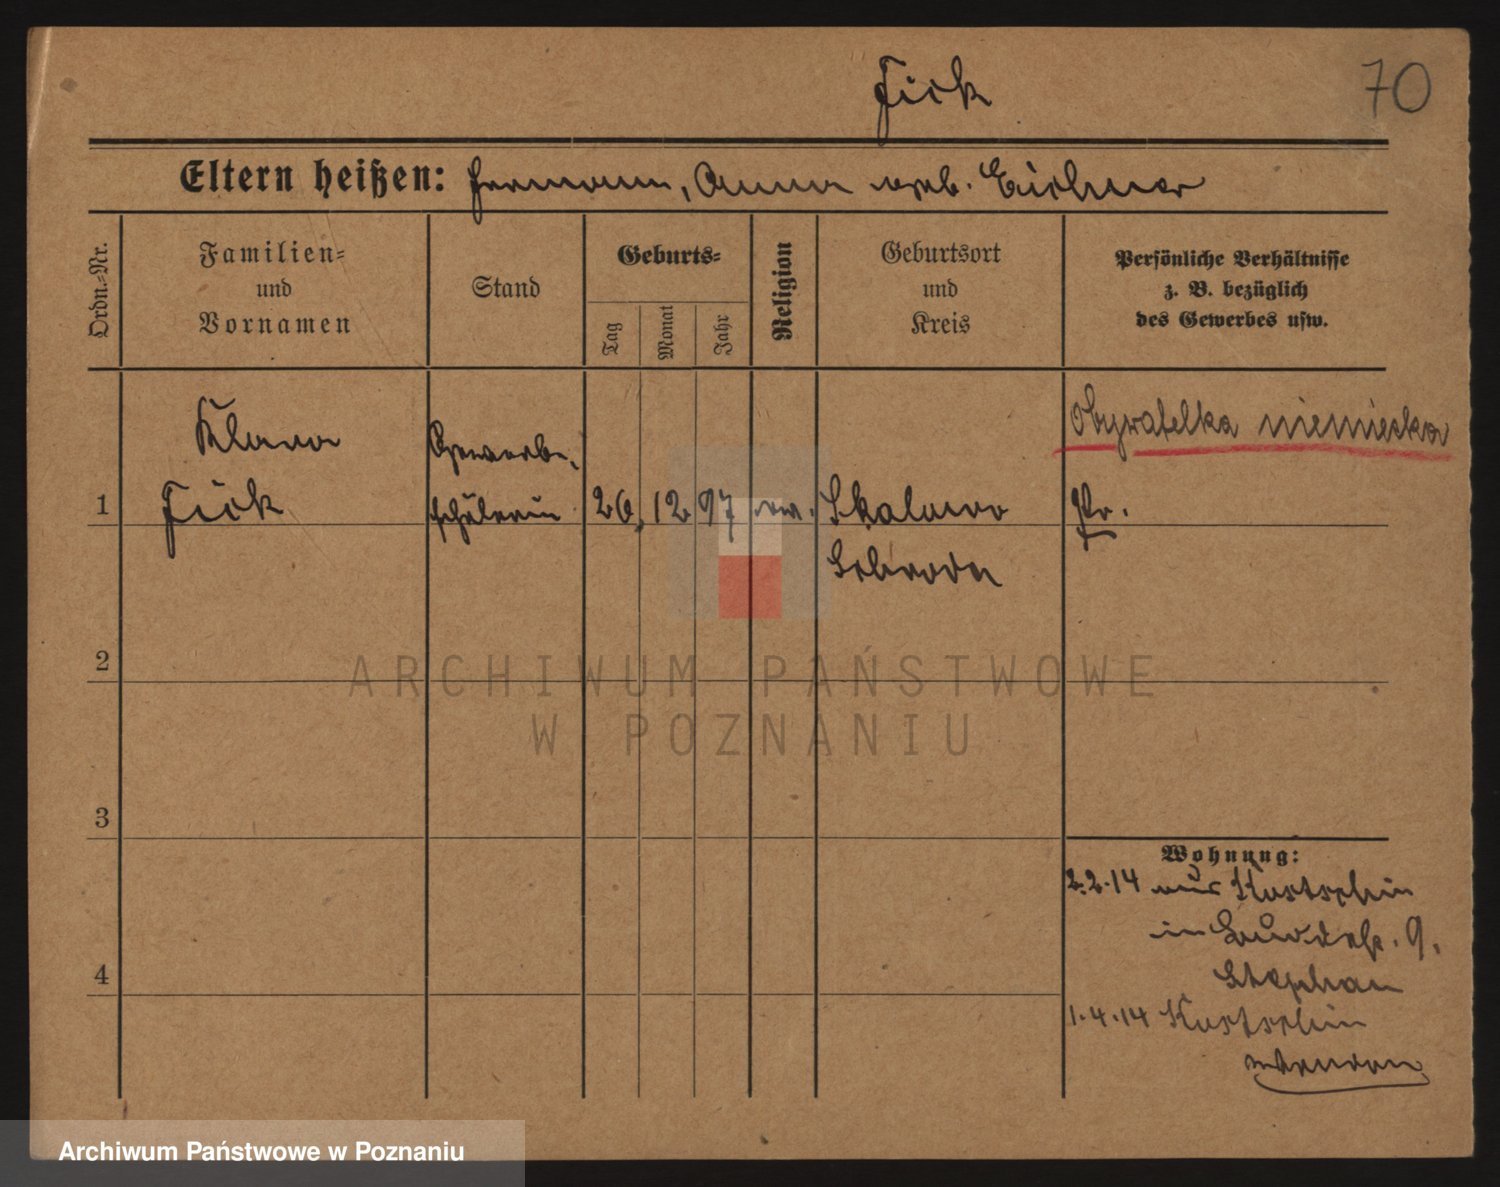 Fick
70
Eltern heißen: Hermann, Anna geb. Eichner
Ordn.-Nr.
Familien- und Vornamen
Stand
Geburts-
Tag
Monat
Jahr
Religion
Geburtsort und Kreis
Persönliche Verhältnisse
z. B. bezüglich
des Gewerbes usw.
Obywatelka niemiecka
Klara
Gewerbe-
1 Fick schülerin 26. 12 97 ev. Skalowo Pr.
Schroda
2
ARCHIWUM PAŃSTWOWE
W POZNANIU
3
Wohnung:
2.2.14 aus Kostschin
in 9.
Stephan
4
1.4.14 Kostschin
Archiwum Państwowe w Poznaniu